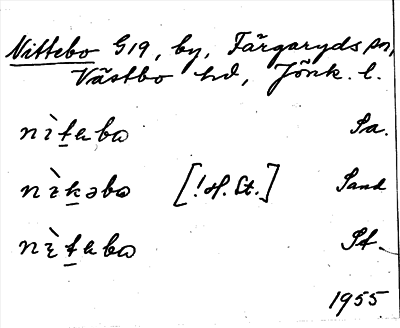 Nittebo G19, by, Färgaryds sn,
Västbo hd, Jönk. l.
nìt̠ebo Sa.
nìk̠əbo [!H. St.] Sand
nìt̠ebo St.
1955